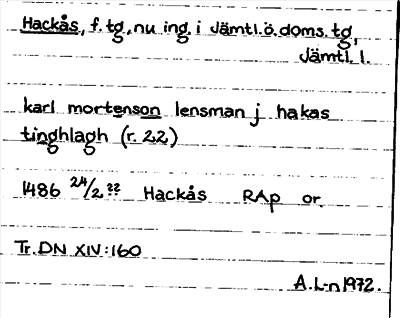 Hackås, f. tg., nu ing. i Jämtl.ö.doms.tg,
Jämtl. l.
karl mortenson lensman j hakas
tinghlagh (r. 22)
1486 24/2 ?? Hackås RAp or.
Tr. DN XIV:160
A.L-n 1972.